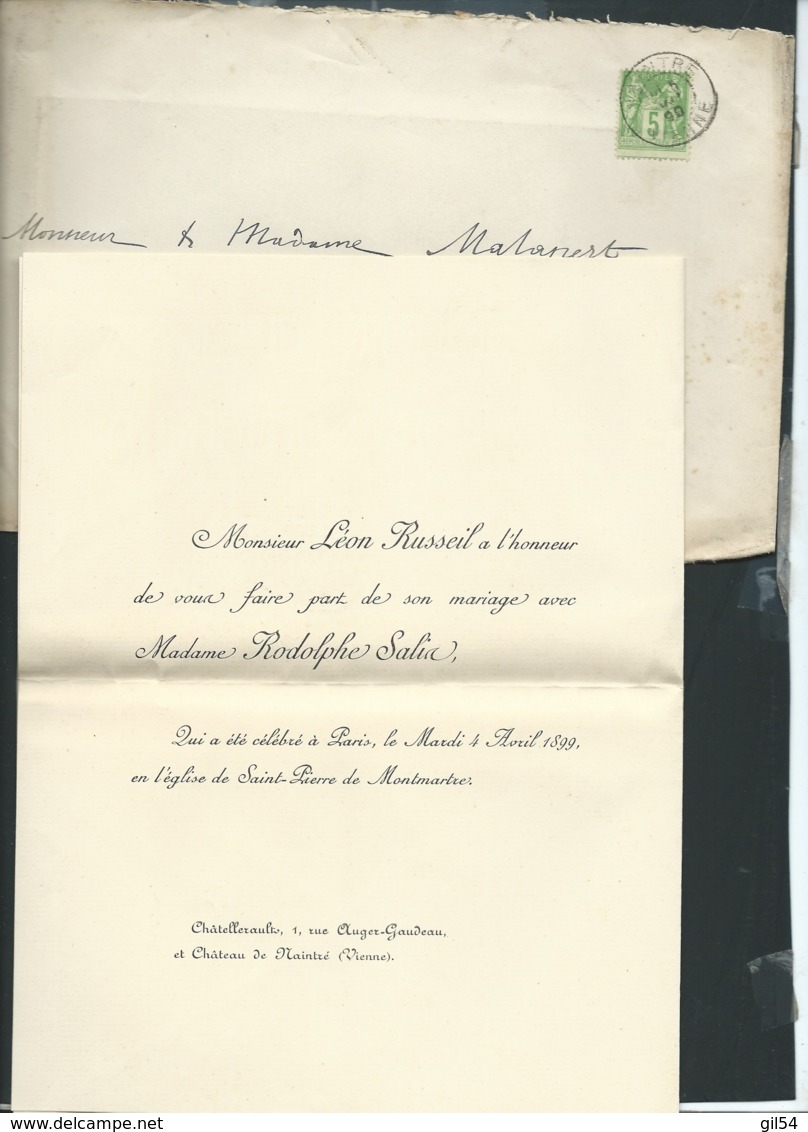 NAINTRÉ
99
VIENNE
5
Monsieur & Madame
Monsieur Léon Russeil a l'honneur
de vous faire part de son mariage avec
Madame Rodolphe Salis,
Qui a été célébré à Paris, le Mardi 4 Avril 1899,
en l'église de Saint-Pierre de Montmartre.
Châtellerault, 1, rue Auger-Gaudeau,
et Château de Naintré (Vienne).
delcampe.net
gil54